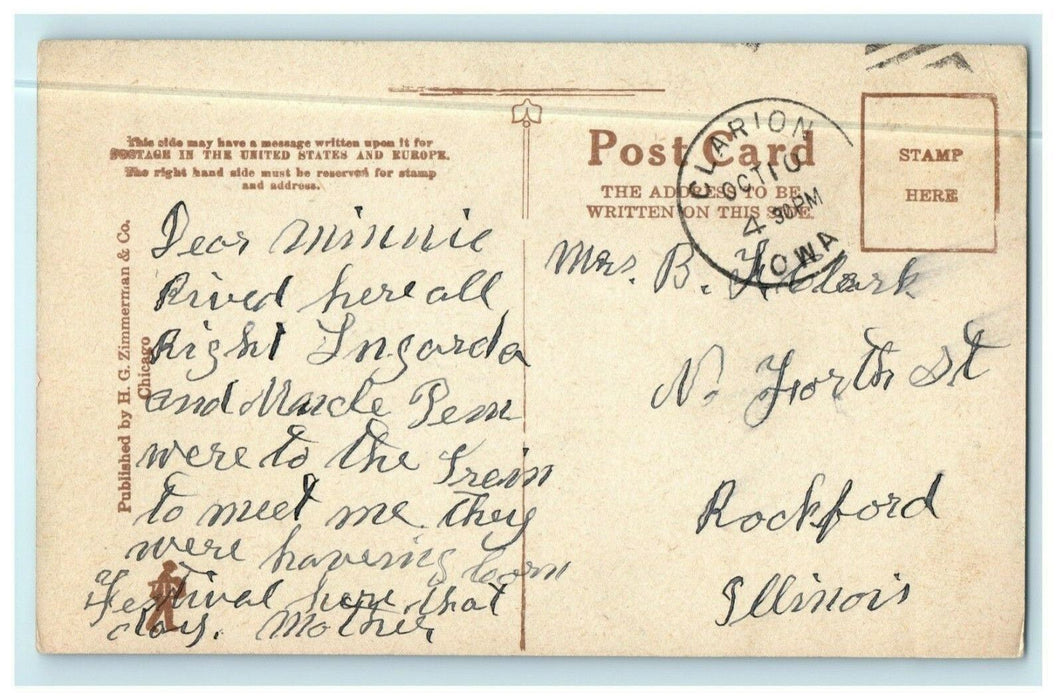 This side may have a message written upon it for
POSTAGE IN THE UNITED STATES AND EUROPE.
The right hand side must be reserved for stamp
and address.
Published by H. G. Zimmerman & Co.
Chicago
Dear Minnie
Rived here all
Right Ingarda
and Uncle Pem
were to the Train
to meet me they
were havering Corn
Festival here that
day. Mother
ZIM
Post Card
THE ADDRESS TO BE
WRITTEN ON THIS SIDE.
CLARION
OCT 10
4 30PM
IOWA
STAMP
HERE
Mrs. B. Clark
N. Forth St
Rockford
Illinois